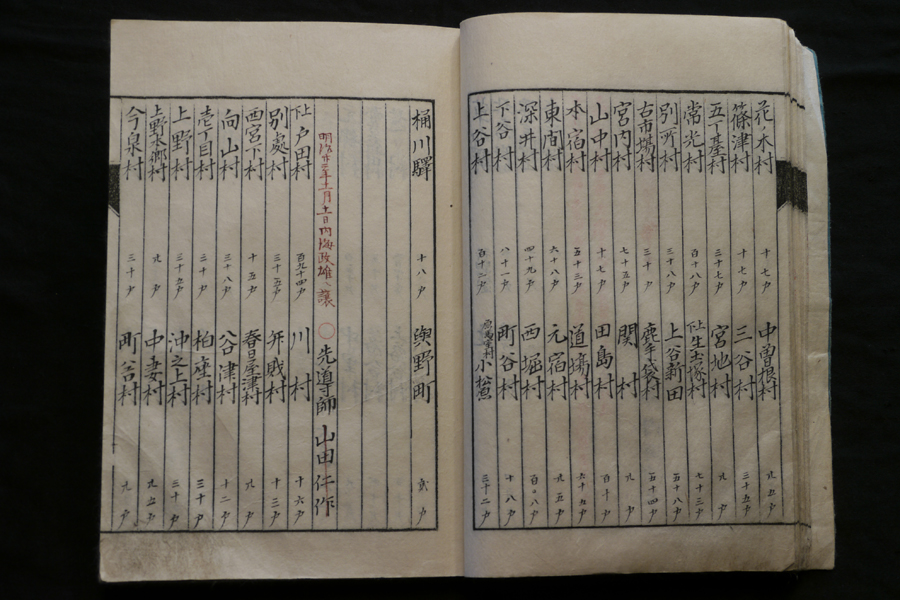 花ノ木村 十七戸 中曽根村 廾五戸
篠津村 十七戸 三谷村 三十五戸
五丁基村 三十戸 宮地村
常光村 百十八戸 生出塚村 七十三戸
別所村 三十八戸 上谷新田 五十八戸
古市場村 三十戸 鹿手袋村 五十四戸
宮内村 七十五戸 関村 廾戸
山中村 十七戸 田島村 百十戸
本宿村 五十三戸 道場村 六十五戸
東間村 六十八戸 元宿村 廾五戸
深井村 四十九戸 西堀村 百〇八戸
下谷村 八十一戸 町谷村 十八戸
上谷村 百十二戸 小松 三十二戸
桶川驛 十八戸 與野町 戸
明治廿三年十一月十一日内海政雄ヘ譲 〇先導師 山田仁作
戸田村 百九十四戸 川村 十六戸
別處村 三十五戸 弁財村 十三戸
西宮下村 十五戸 春日屋津村 廾戸
向山村 三十八戸 谷津村 十二戸
壱丁目村 三十戸 柏座村 三十戸
上野村 三十五戸 沖之上村 三十戸
上野本郷村 廾戸 中妻村 廾五戸
今泉村 三十戸 町谷村 廾戸